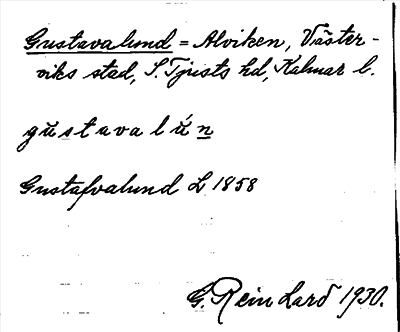 Gustavalund = Alviken, Väster-
viks stad, S. Tjusts hd, Kalmar l.
gustavalún
Gustafvalund L 1858
G. Reinhard 1930.